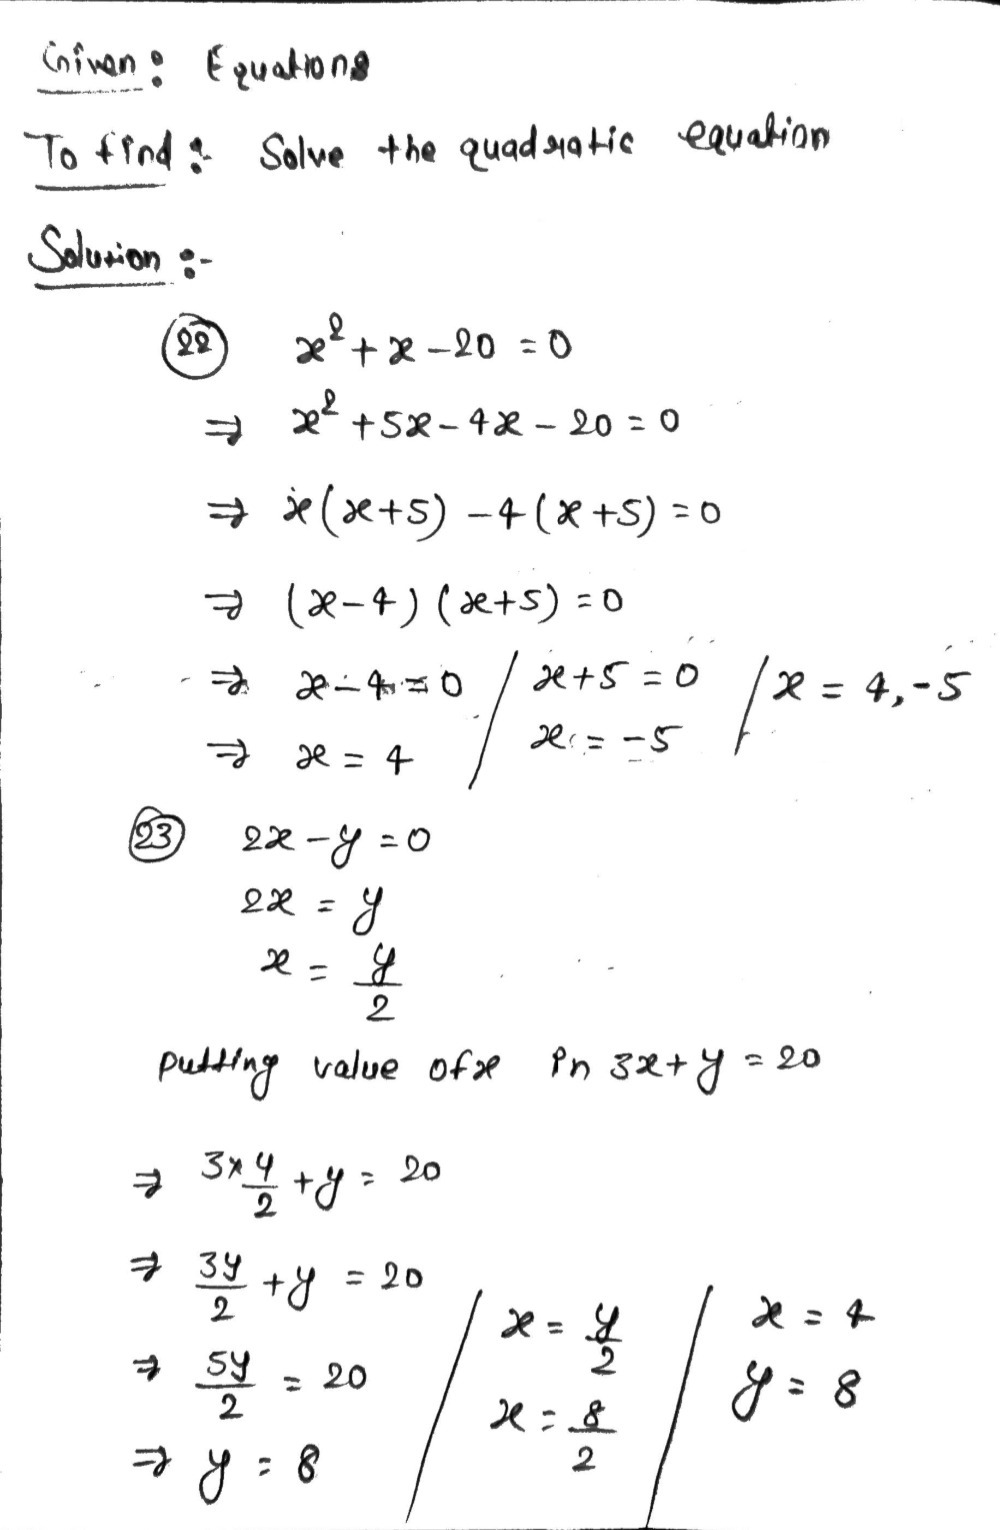 Given: Equations
To find :- Solve the quadratic equation
Solution :-
(22) x² + x - 20 = 0
⇒ x² + 5x - 4x - 20 = 0
⇒ x(x+5) - 4(x+5) = 0
⇒ (x-4)(x+5) = 0
⇒ x - 4 = 0 / x+5 = 0 / x = 4, -5
⇒ x = 4 / x = -5
(23) 2x - y = 0
2x = y
x = y/2
putting value of x in 3x + y = 20
⇒ 3×y/2 + y = 20
⇒ 3y/2 + y = 20
⇒ 5y/2 = 20
⇒ y = 8
x = y/2
x = 8/2
x = 4
y = 8